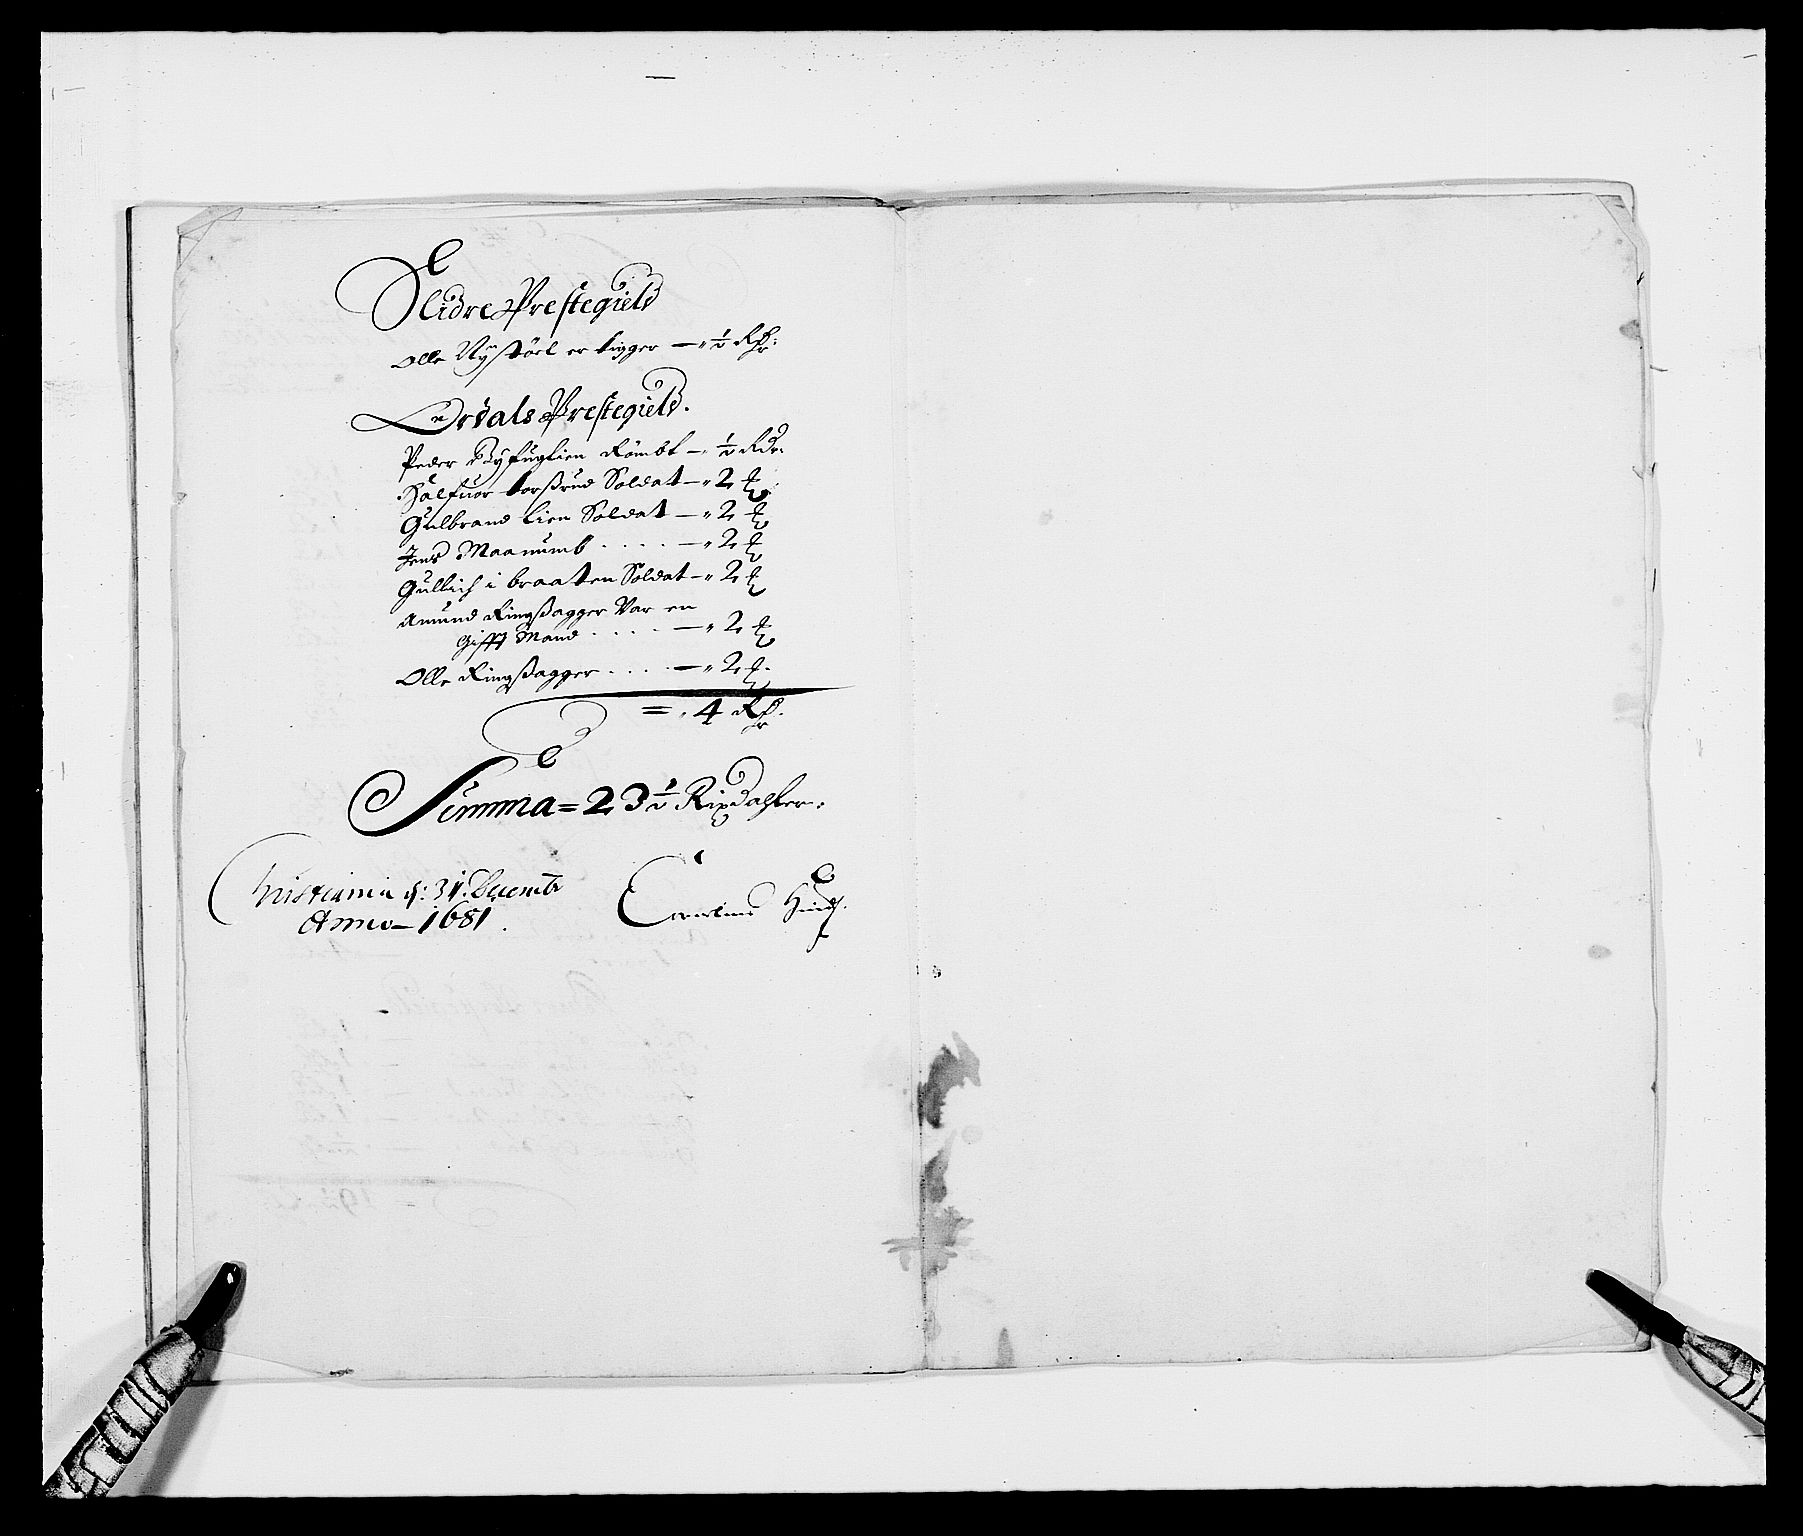 Slidre Prestegield
Olle Nystöel er tigger — „ ½ Rdr:
Ordals Prestegield.
Peder Byfuglien — „ ½ Rdr:
Halfuor Soldat — „ 2
Gulbrand Lien Soldat — „ 2
Jens Maanumb . . . . — „ 2
Gullich i braaten Soldat — „ 2
Amund Ringßagger Var en
Gifft Mand . . . . — „ 2
Olle Ringßagger . . . . — „ 2
= „ 4 Rdr.
Summa = 23 ½ Rixdahler.
Christiania d: 31. Decembr
Anno — 1681.